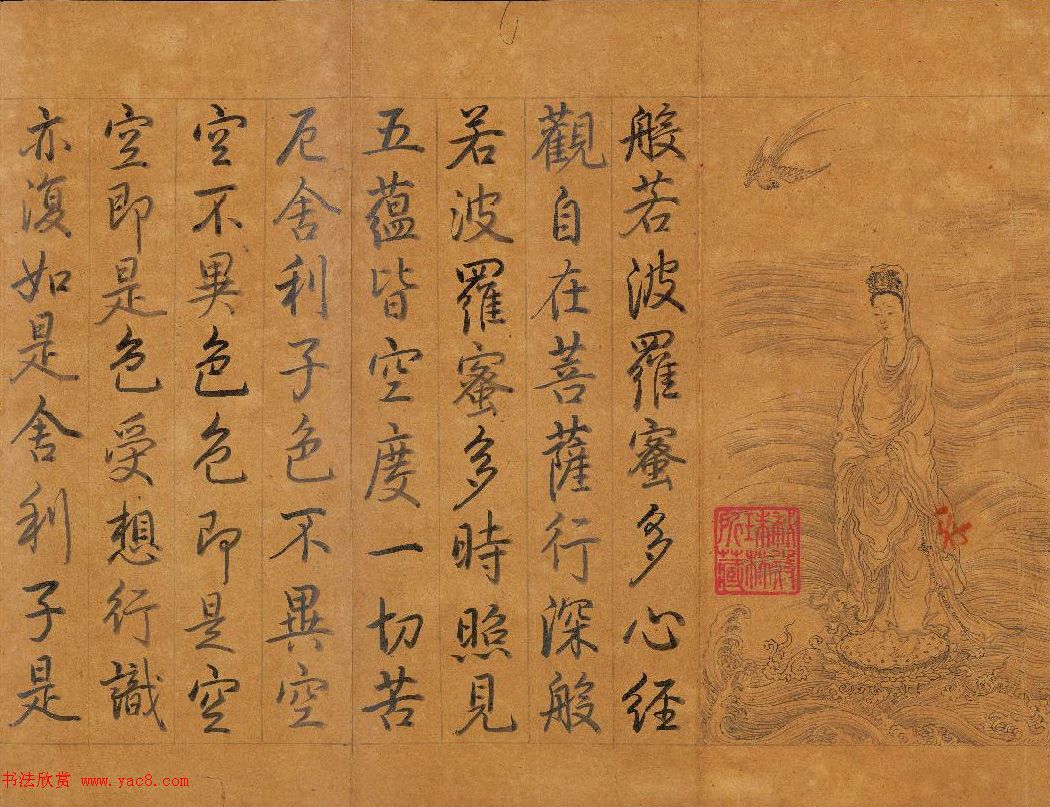 般若波羅蜜多心経
觀自在菩薩行深般
若波羅蜜多時照見
五蘊皆空度一切苦
厄舍利子色不異空
空不異色色即是空
空即是色受想行識
亦復如是舍利子是
秘殿
珠林
所藏
书法欣赏 www.yac8.com